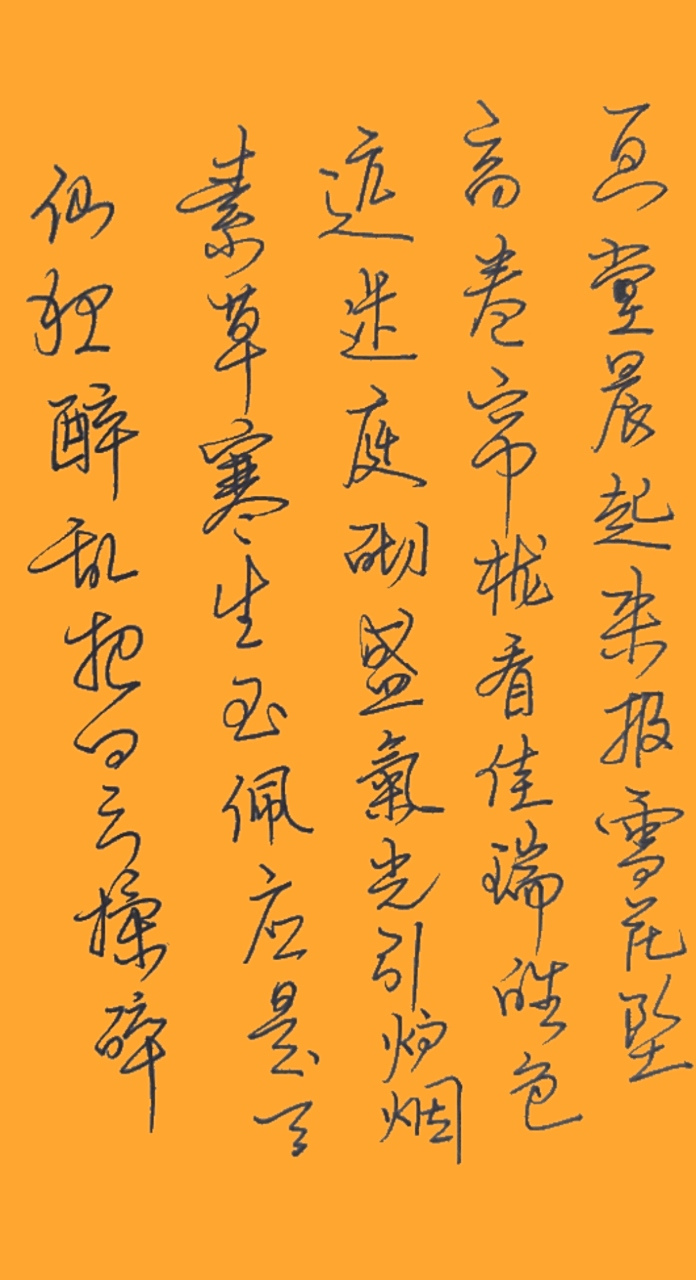 画堂晨起来报雪花坠
高卷帘栊看佳瑞皓色
远迷庭砌盛氣光引炉烟
素草寒生玉佩应是天
仙狂醉乱把白云揉碎